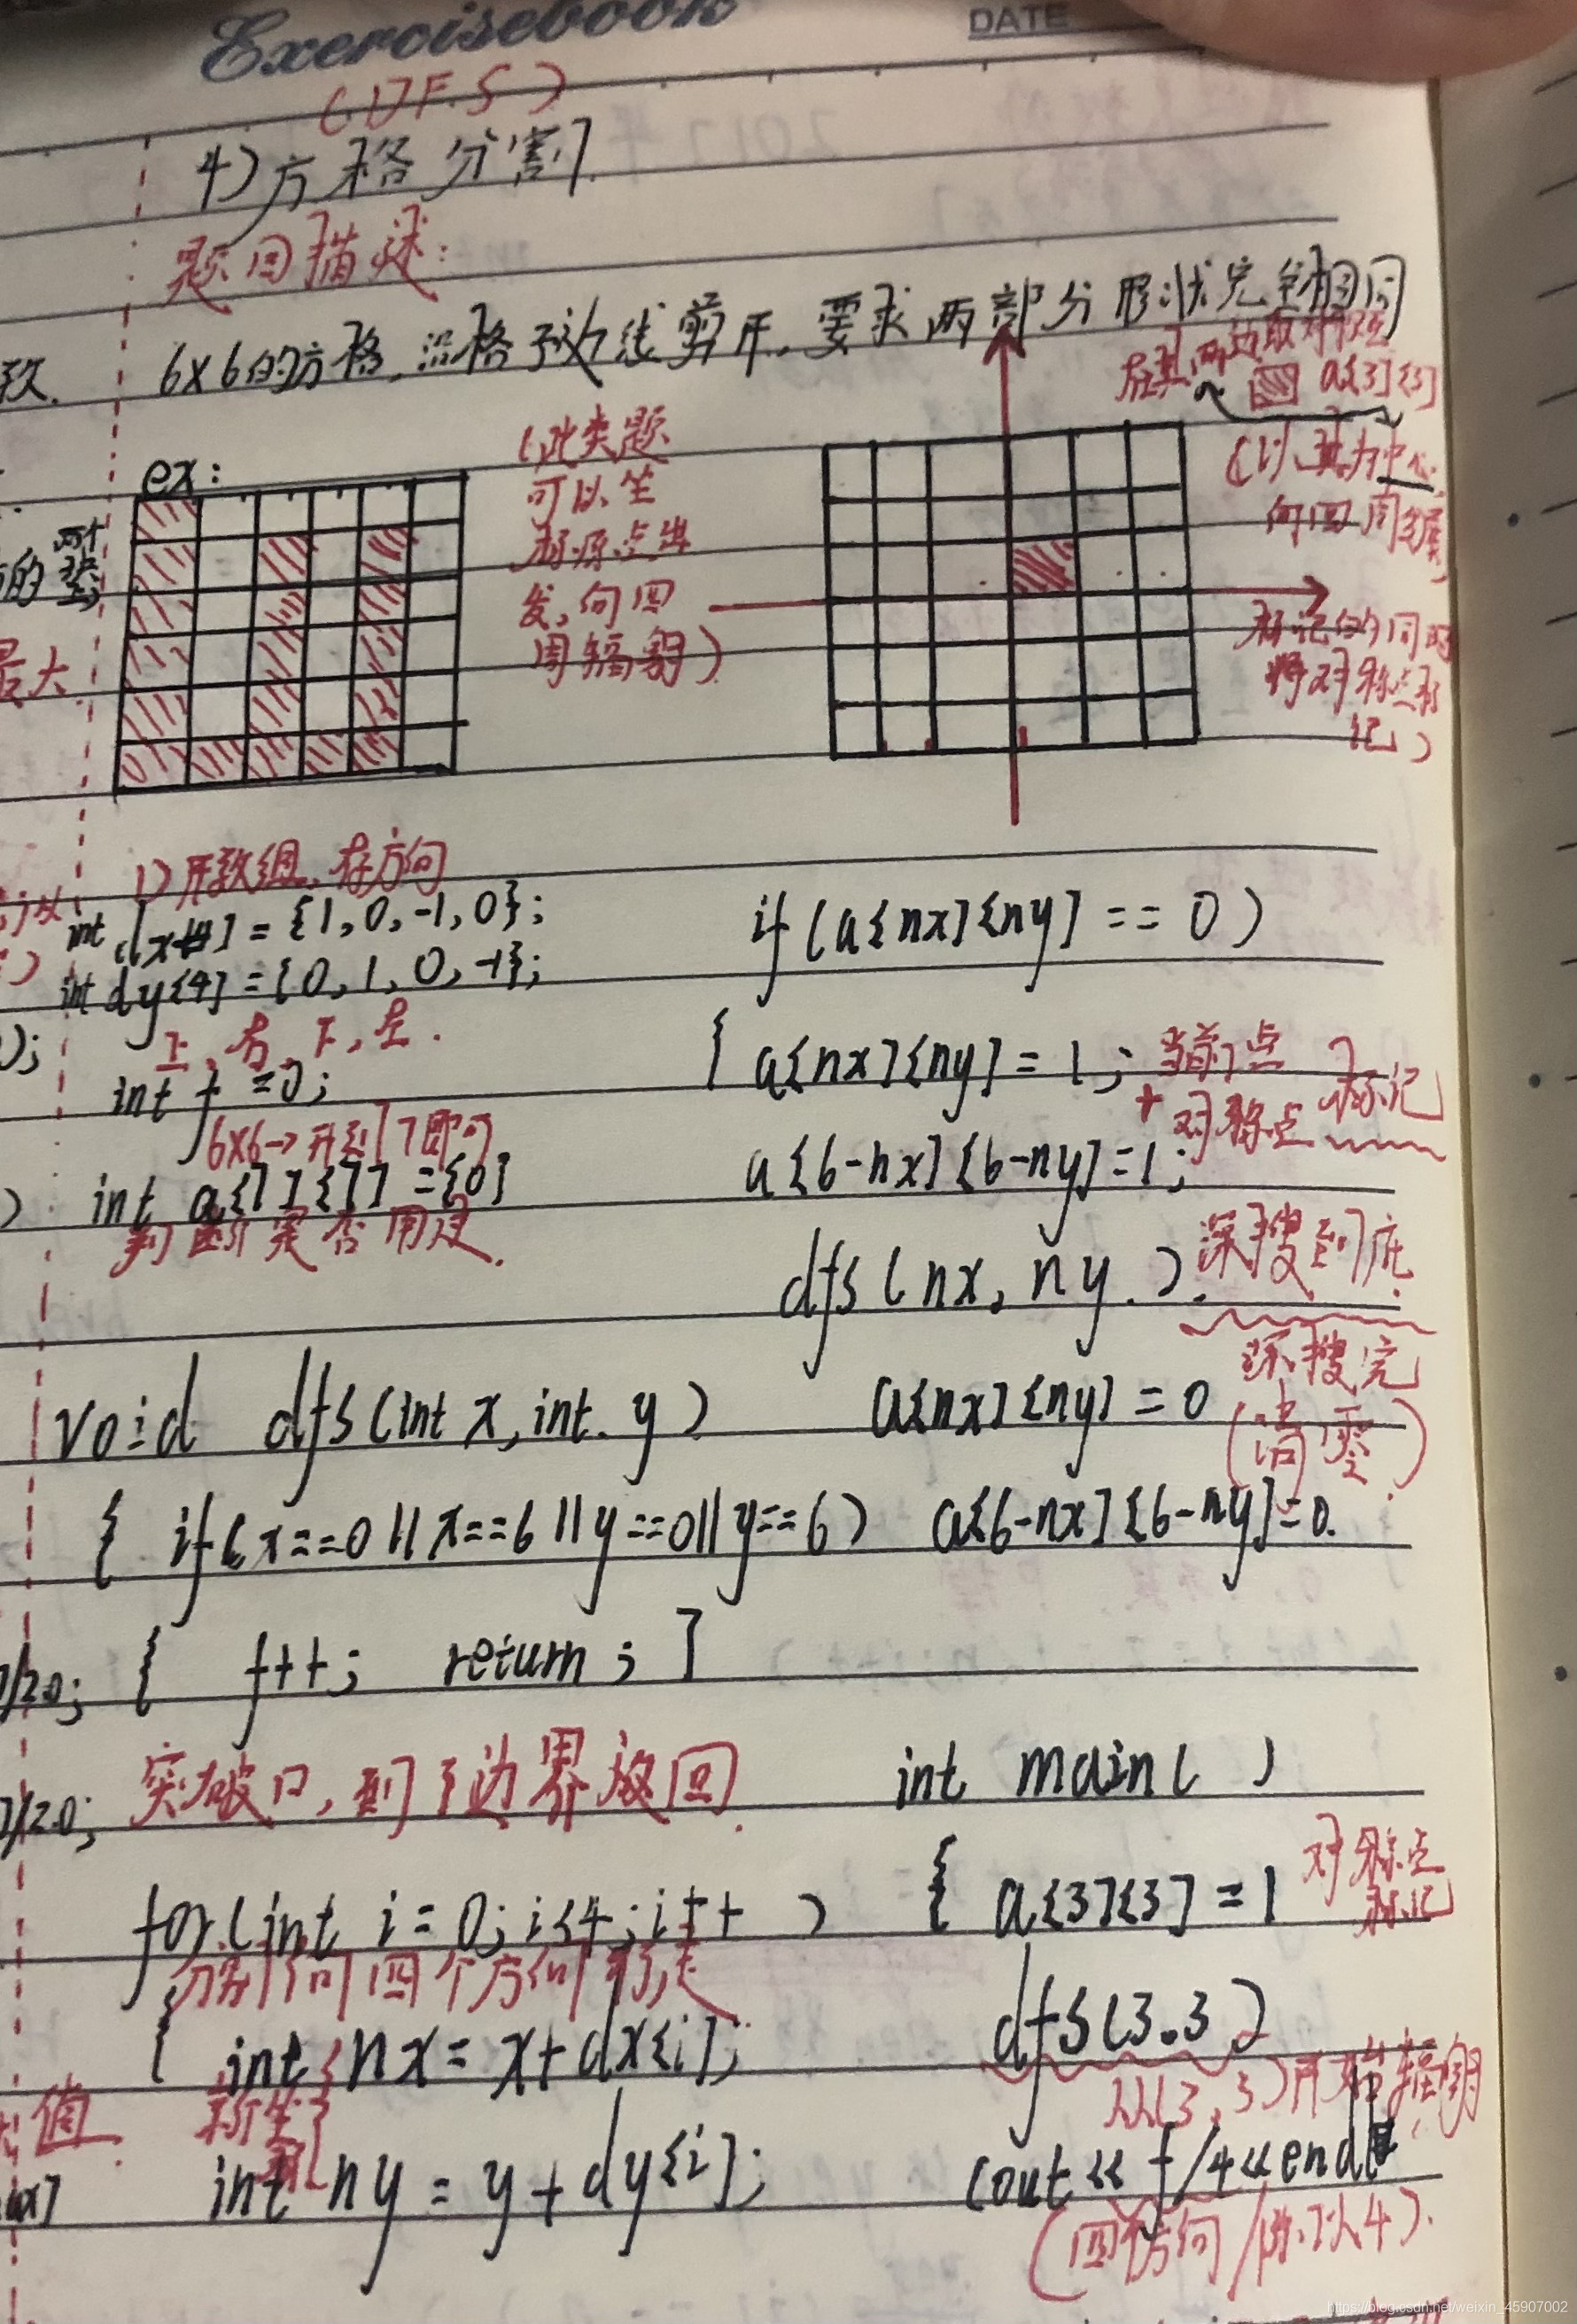 Exercisebook
DATE
(DFS)
4)方格分割
题目描述:
6x6的方格,沿格子边线剪开,要求两部分形状完全相同
致.
ex:
(此类题
可以坐
标原点出
发,向四
周辐射)
a[3][3]
(以其为中心,
向四周发展,
标记的同时
将对称点标
记)
的两个
最大
1)开数组,存方向
int dx[4] = {1,0,-1,0};
int dy[4] = {0,1,0,-1};
上,右,下,左.
int f =0;
6x6→开到7即可
int a[7][7] ={0}
判断是否用过.
void dfs(int x,int y)
{ if(x==0||x==6||y==0||y==6)
{ f++; return; }
突破口,到了边界放回.
for(int i=0;i<4;i++ )
分别向四个方向移走
{ int nx= x+dx[i];
新坐标
int ny = y+dy[i];
if(a[nx][ny] == 0)
{ a[nx][ny] = 1; 当前点
+对称点 标记
a[6-nx][6-ny]=1;
dfs(nx, ny ). 深搜到底.
深搜完
(清零)
a[nx][ny] = 0
a[6-nx][6-ny]=0.
int main( )
{ a[3][3] = 1 对称点
标记
dfs(3.3)
从(3,3)开始辐射
cout<< f/4<<endl
(四方向/除以4).
);
)
)/2.0;
)/2.0;
值.
https://blog.csdn.net/weixin_45907002